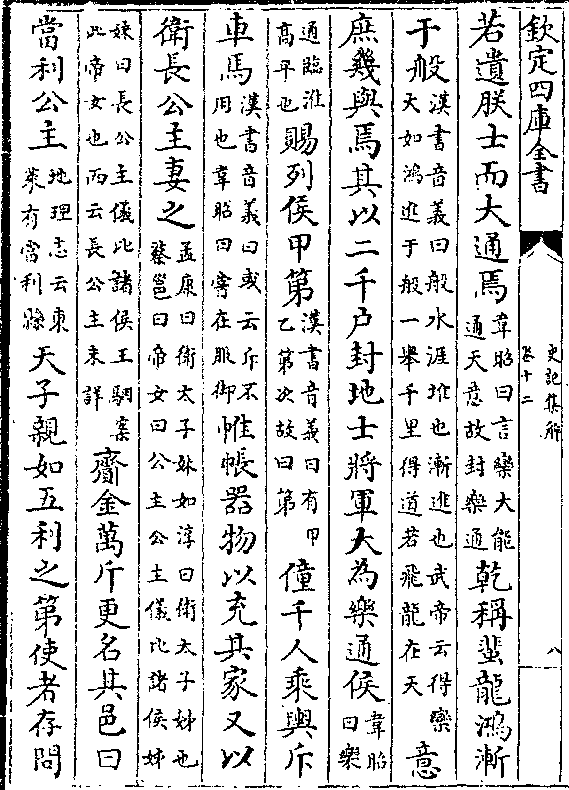 欽定四庫全書
史記集解
卷十二
八
若遺朕士而大通焉韋昭曰言欒大能通天意故封樂通乾稱蜚龍鴻漸
于般漢書音義曰般水涯堆也漸進也武帝云得欒大如鴻進于般一舉千里得道若飛龍在天意
庶幾與焉其以二千户封地士將軍大為樂通侯韋昭曰樂
通臨淮高平也賜列侯甲第漢書音義曰有甲乙第次故曰第僮千人乘輿斥
車馬漢書音義曰或云斥不用也韋昭曰嘗在服御帷帳器物以充其家又以
衛長公主妻之孟康曰衛太子妹如淳曰衛太子姊也蔡邕曰帝女曰公主公主儀比諸侯姊
妹曰長公主儀比諸侯王駰案此帝女也而云長公主未詳齎金萬斤更名其邑曰
當利公主地理志云東萊有當利縣天子親如五利之第使者存問